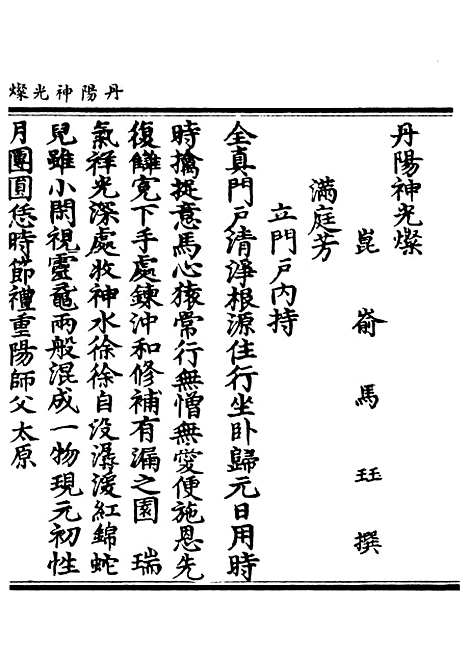 丹陽神光燦
丹陽神光燦
崑崳馬珏撰
滿庭芳
立門戶內持
全真門戶清淨根源住行坐臥歸元日用時
時擒捉意馬心猿常行無憎無愛便施恩先
復讎冤下手處鍊沖和修補有漏之園　瑞
氣祥光深處收神水徐徐自没潺湲紅錦蛇
兒雖小閑視靈龜兩般混成一物現元初性
月團圓恁時節禮重陽師父太原